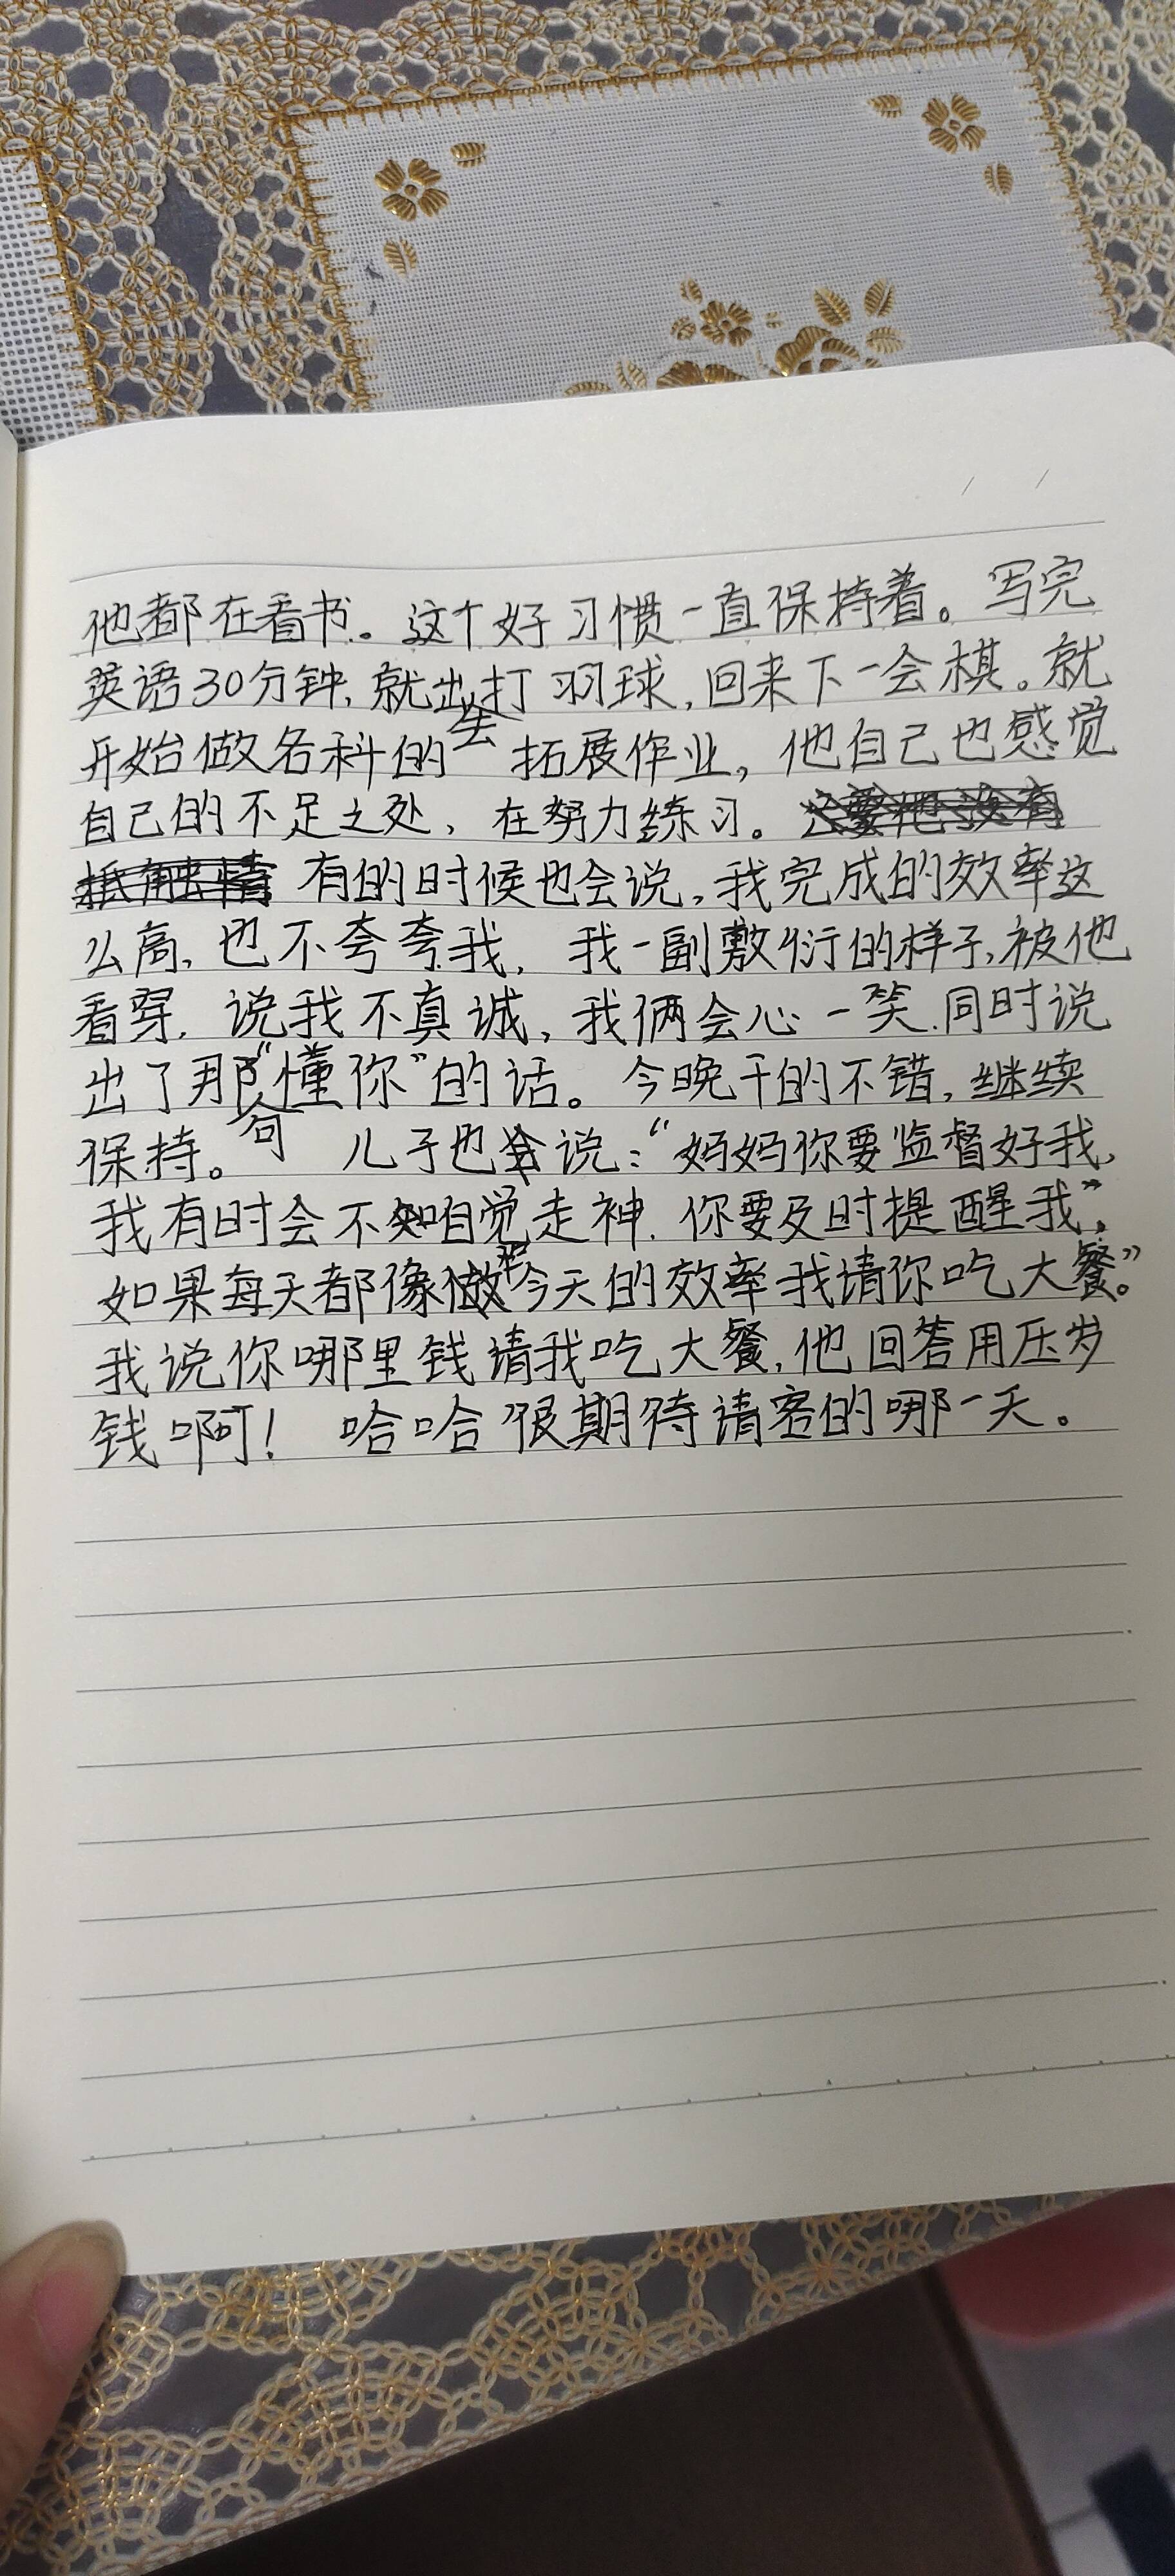 他都在看书。这个好习惯一直保持着。写完
英语30分钟,就出去打羽球,回来下一会棋。就
开始做各科的 拓展作业,他自己也感觉
自己的不足之处、在努力练习。
有的时候也会说,我完成的效率这
么高,也不夸夸我,我一副敷衍的样子,被他
看穿,说我不真诚,我俩会心一笑.同时说
出了那句“懂你”的话。今晚干的不错,继续
保持。 儿子也会说:“妈妈你要监督好我,
我有时会不知自觉走神.你要及时提醒我”,
如果每天都像做今天的效率我请你吃大餐。”
我说你哪里钱请我吃大餐,他回答用压岁
钱啊! 哈哈很期待请客的哪一天。